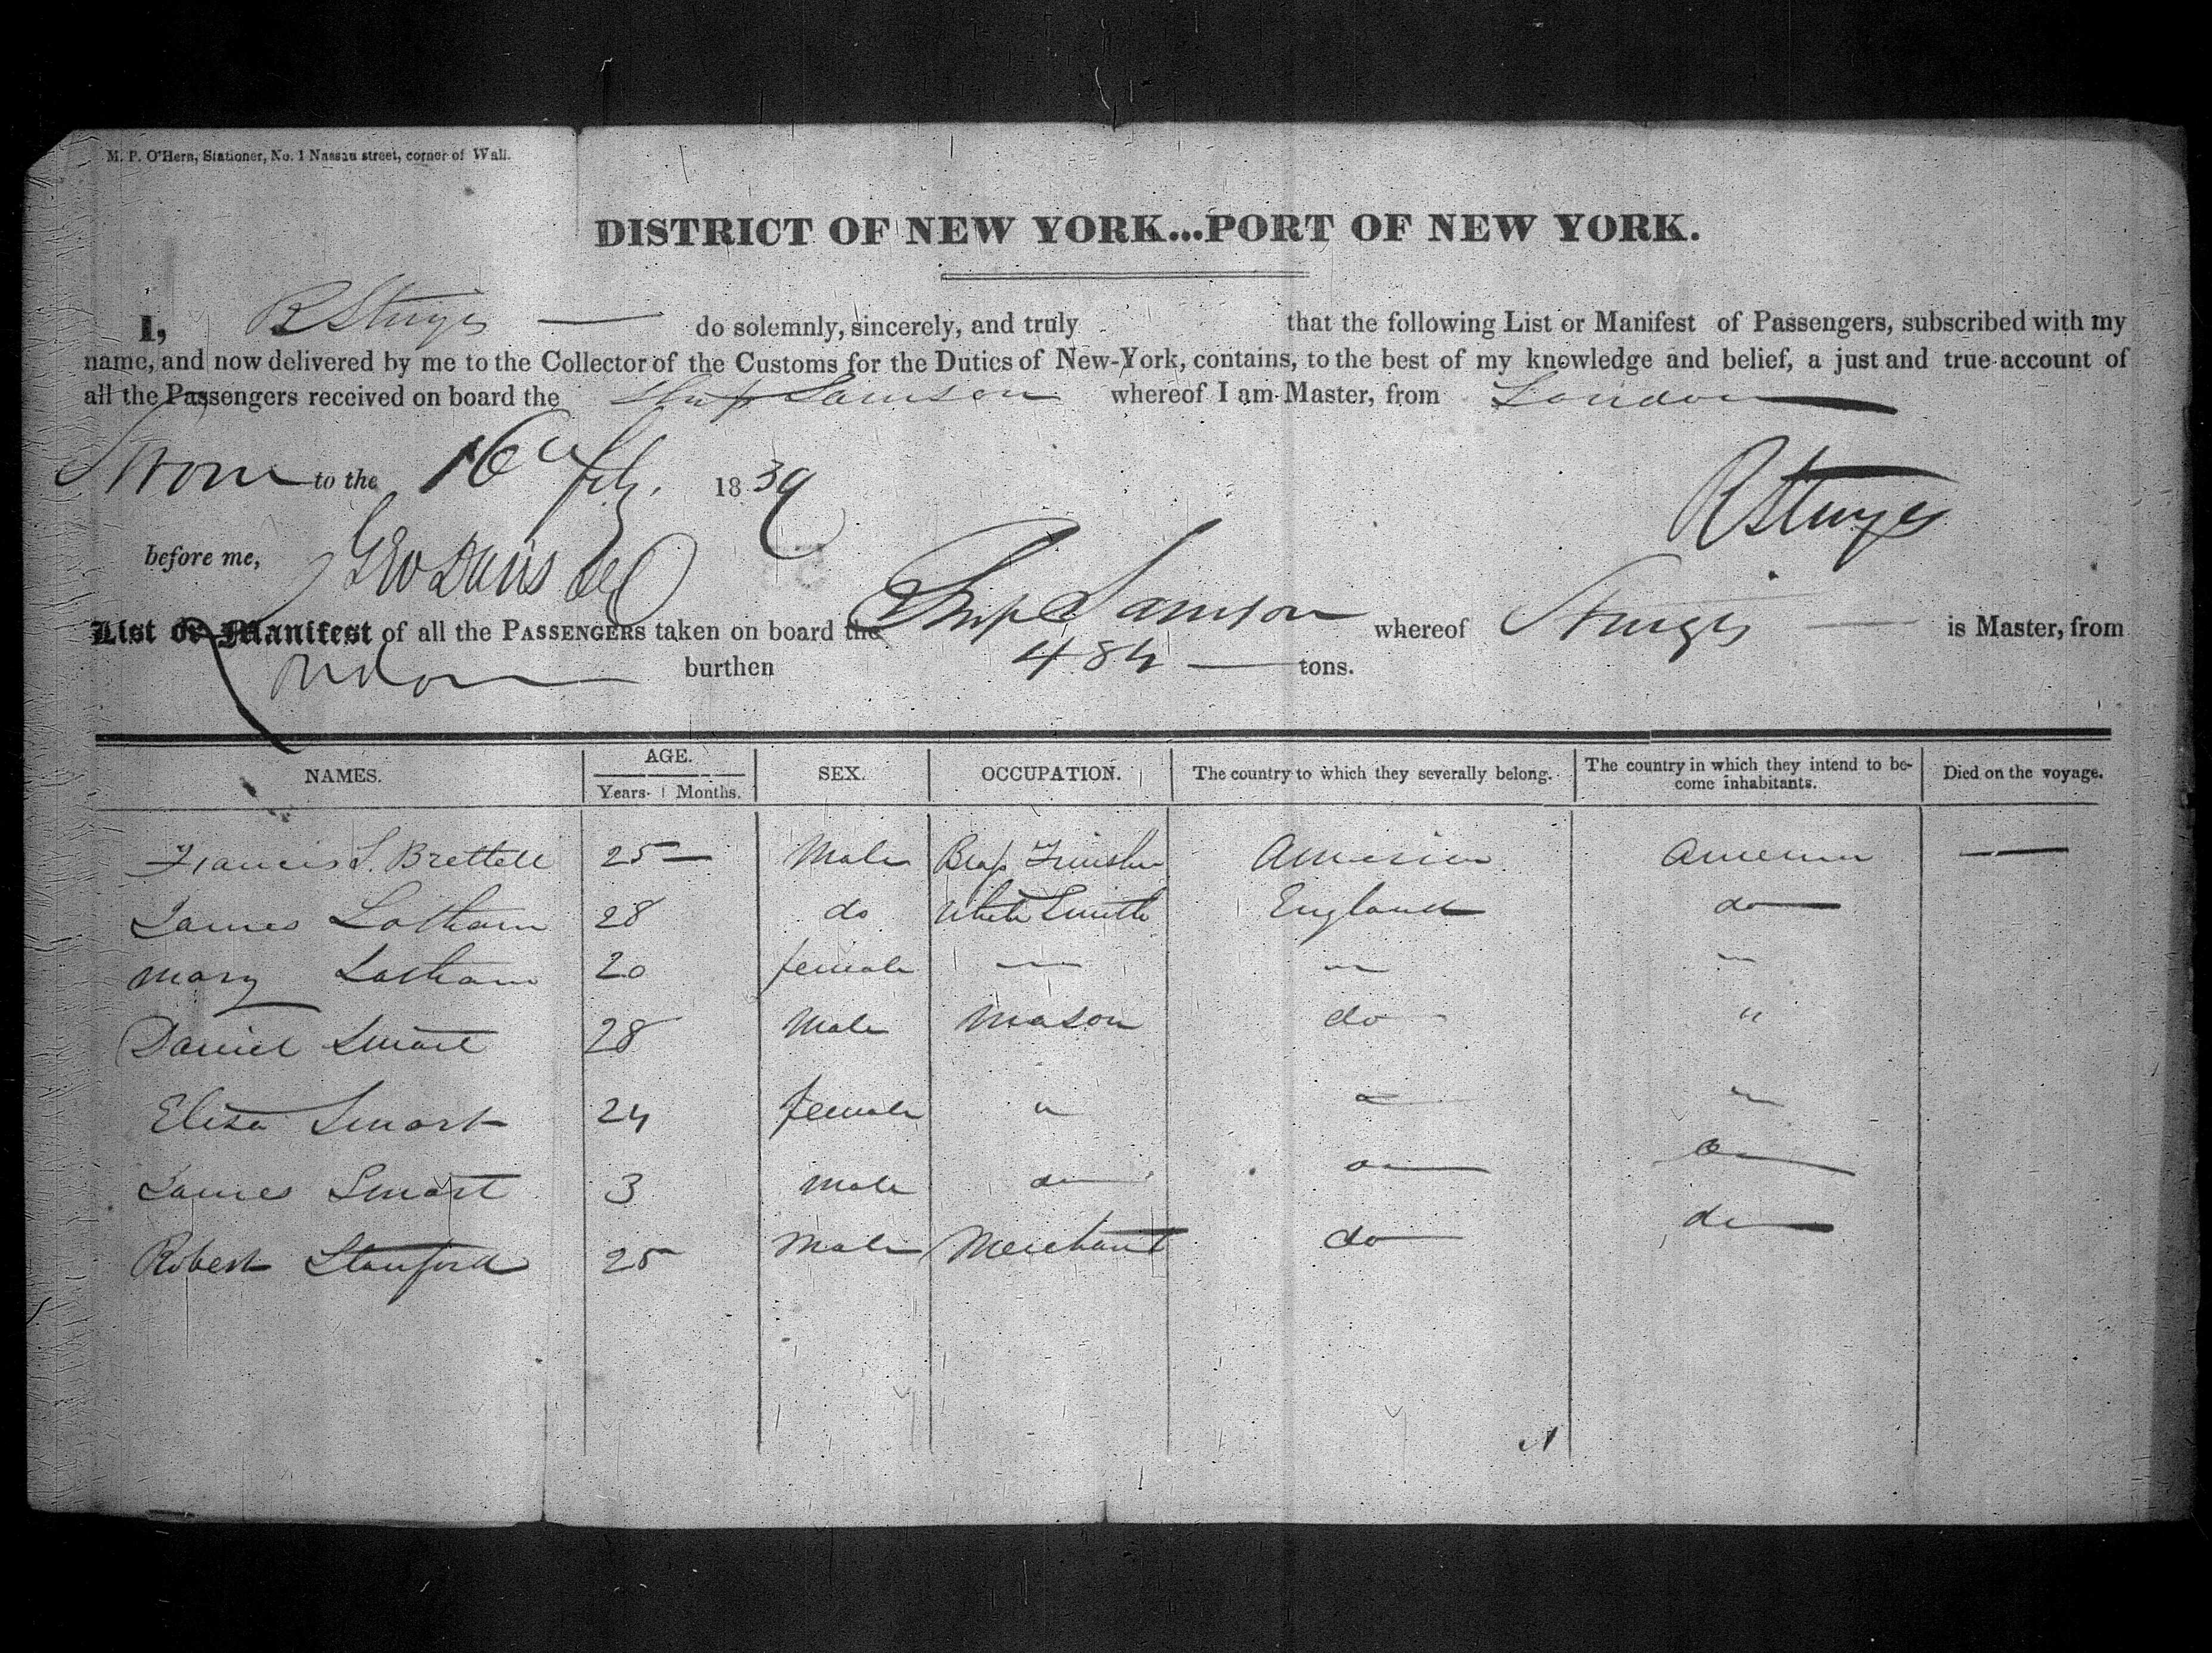 M. P. O'Hern, Stationer, No. 1 Nassau street, corner of Wall.
DISTRICT OF NEW YORK...PORT OF NEW YORK.
I, R Sturges — do solemnly, sincerely, and truly that the following List or Manifest of Passengers, subscribed with my
name, and now delivered by me to the Collector of the Customs for the Duties of New-York, contains, to the best of my knowledge and belief, a just and true account of
all the Passengers received on board the Ship Samson whereof I am Master, from London
Sworn to the 16th Feby. 1839
R Sturges
before me, Geo Davis
List or Manifest of all the PASSENGERS taken on board the Ship Samson whereof Sturges — is Master, from
London burthen 484 — tons.
NAMES. AGE. SEX. OCCUPATION. The country to which they severally belong. The country in which they intend to be- Died on the voyage.
Years. Months. come inhabitants.
Francis S. Brettell 25 — Male Brass Finisher America America —
James Latham 28 do White Smith England do
Mary Latham 20 female — " "
Daniel Smart 28 Male Mason do "
Eliza Smart 24 female " " "
James Smart 3 Male do do do
Robert Stanford 25 Male Merchant do do